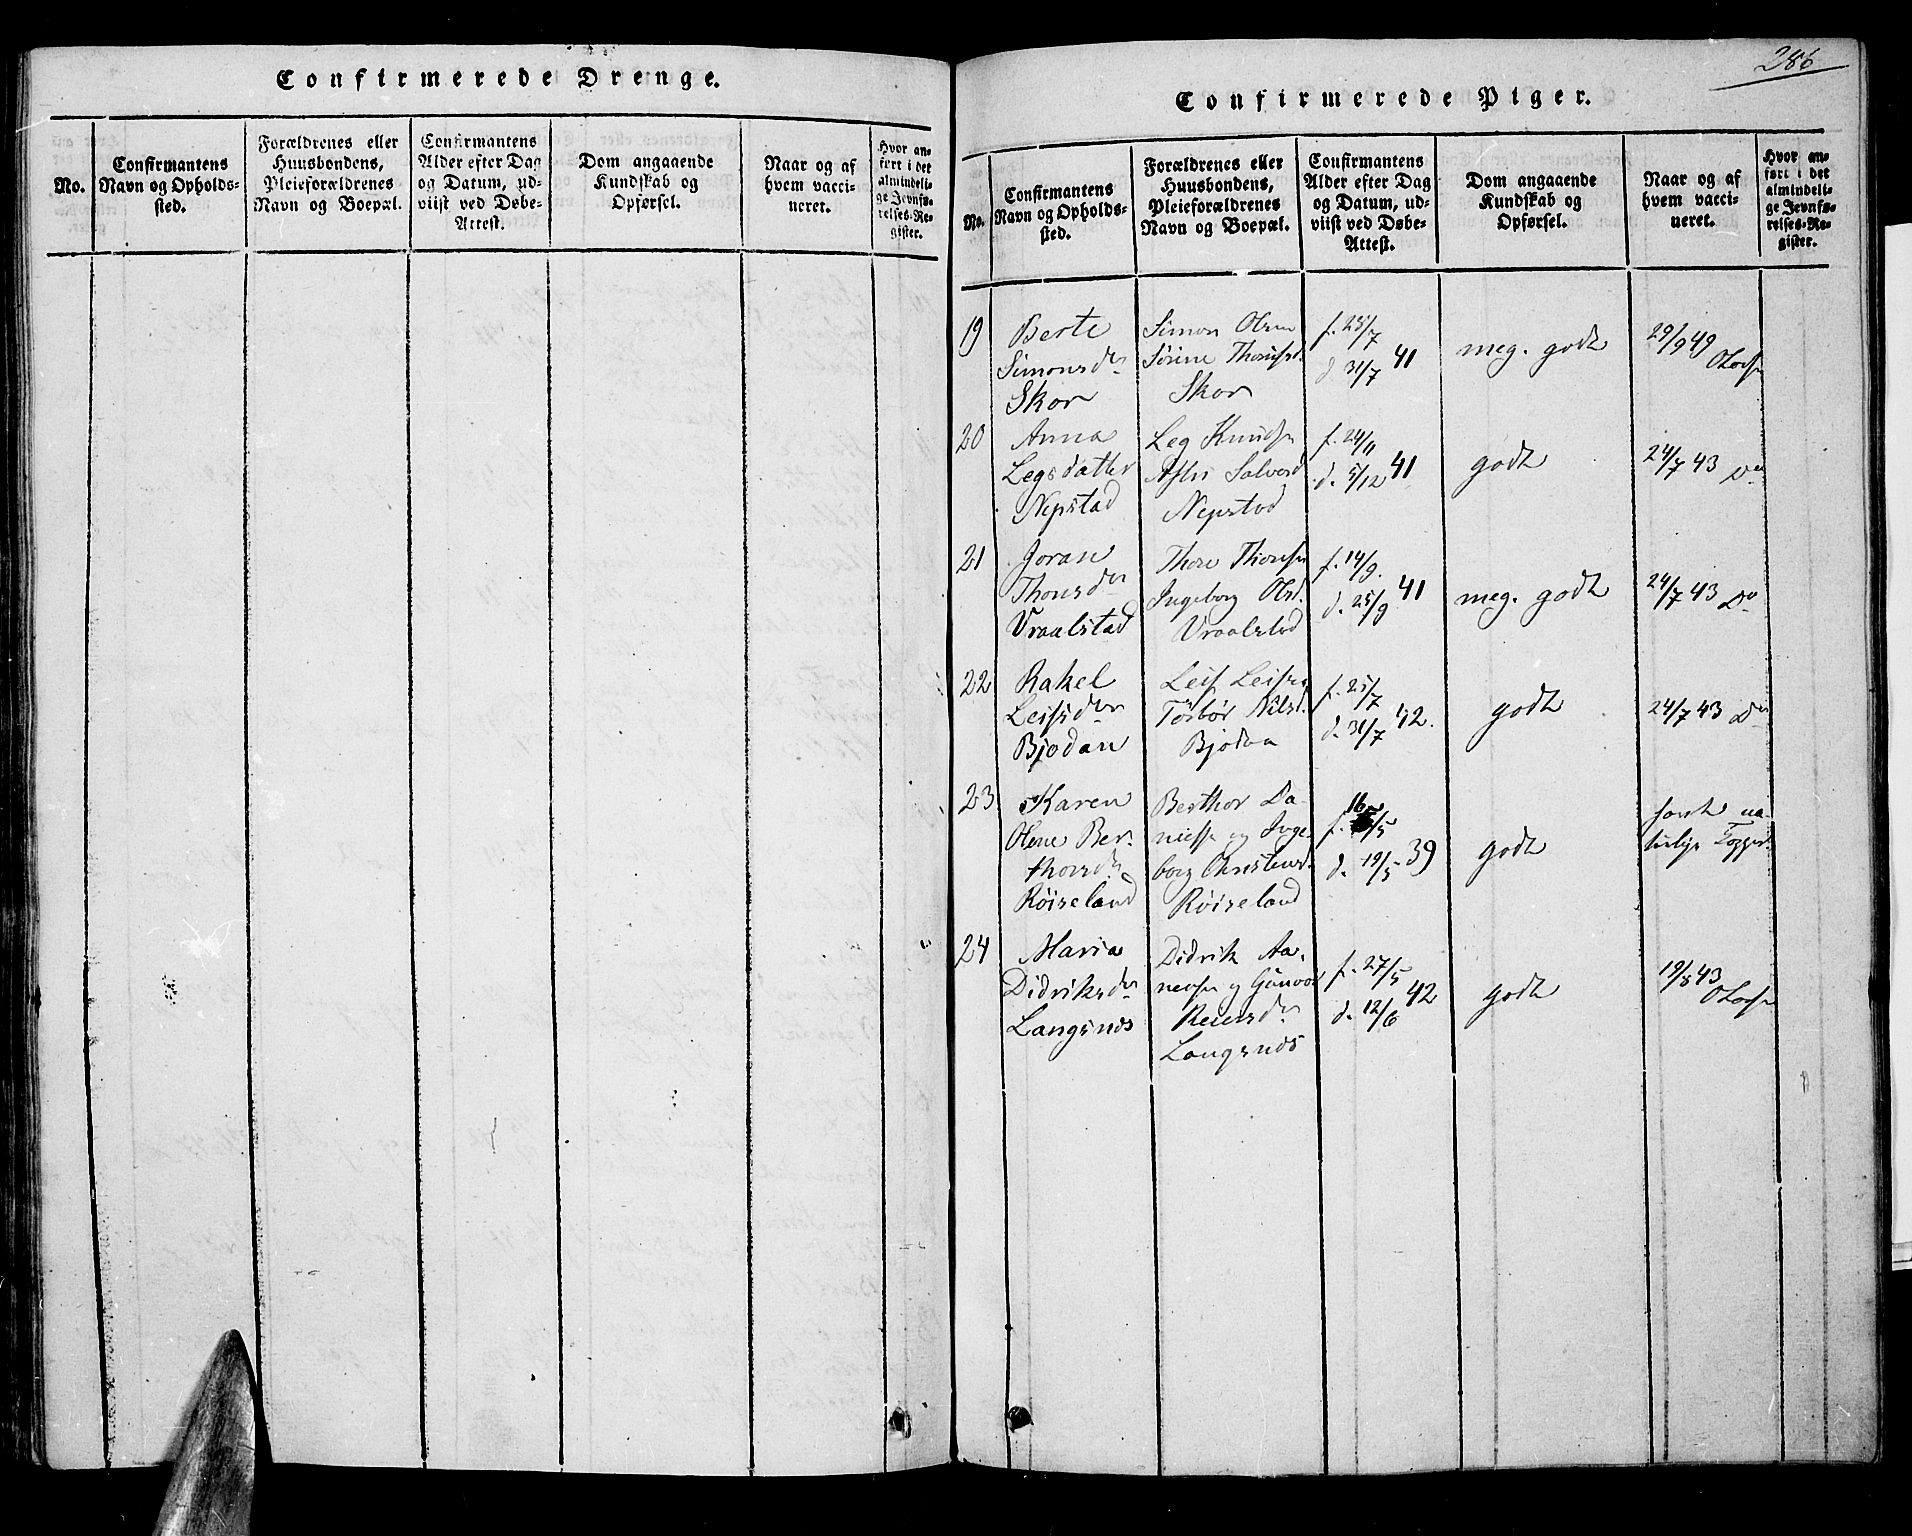 Confirmerede Drenge.
No.
Confirmantens
Navn og Opholds-
sted.
Forældrenes eller
Huusbondens,
Pleieforældrenes
Navn og Boepæl.
Confirmantens
Alder efter Dag
og Datum, ud-
viist ved Døbe-
Attest.
Dom angaaende
Kundskab og
Opførsel.
Naar og af
hvem vacci-
neret.
Hvor an-
ført i det
almindeli-
ge Jevnfø-
relses-Re-
gister.
286
Confirmerede Piger.
No.
Confirmantens
Navn og Opholds-
sted.
Forældrenes eller
Huusbondens,
Pleieforældrenes
Navn og Boepæl.
Confirmantens
Alder efter Dag
og Datum, ud-
viist ved Døbe-
Attest.
Dom angaaende
Kundskab og
Opførsel.
Naar og af
hvem vacci-
neret.
Hvor an-
ført i det
almindeli-
ge Jevnfø-
relses-Re-
gister.
19
Berte
Simonsdr
Skor
Simon Olsen
Sørine
Skor
f. 25/7
d 31/7 41
meg. godt
29/9 49
20
Anna
Legsdatter
Nepstad
Leg Knudsn
Salvesd
Nepstad
f. 24/11
d. 5/12 41
godt
24/7 43 Do
21
Joran
Thorsdr
Vraalstad
Thore Thorsn
Ingeborg Olsd.
Vraalstad
f. 14/9.
d. 25/9 41
meg. godt
24/7 43 Do
22
Rakel
Leifsdr
Bjodan
Leif Leifsn
Torbør Nilsd.
Bjodan
f. 25/7
d. 31/7 42.
godt
24/7 43 Do
23
Karen
Olene Ber-
thorsdr
Røiseland
Berthor Da-
nielsn og Inge-
borg Christensd.
Røiseland
f. 16/5
d. 19/5 39
godt
havt na-
turlige Kopper
24
Maria
Didriksdr
Langsnøs
Didrik Aa-
nensn og Gunvor
Reiersdr
Langsnøs
f. 27/5
d. 12/6 42
godt
19/8 43